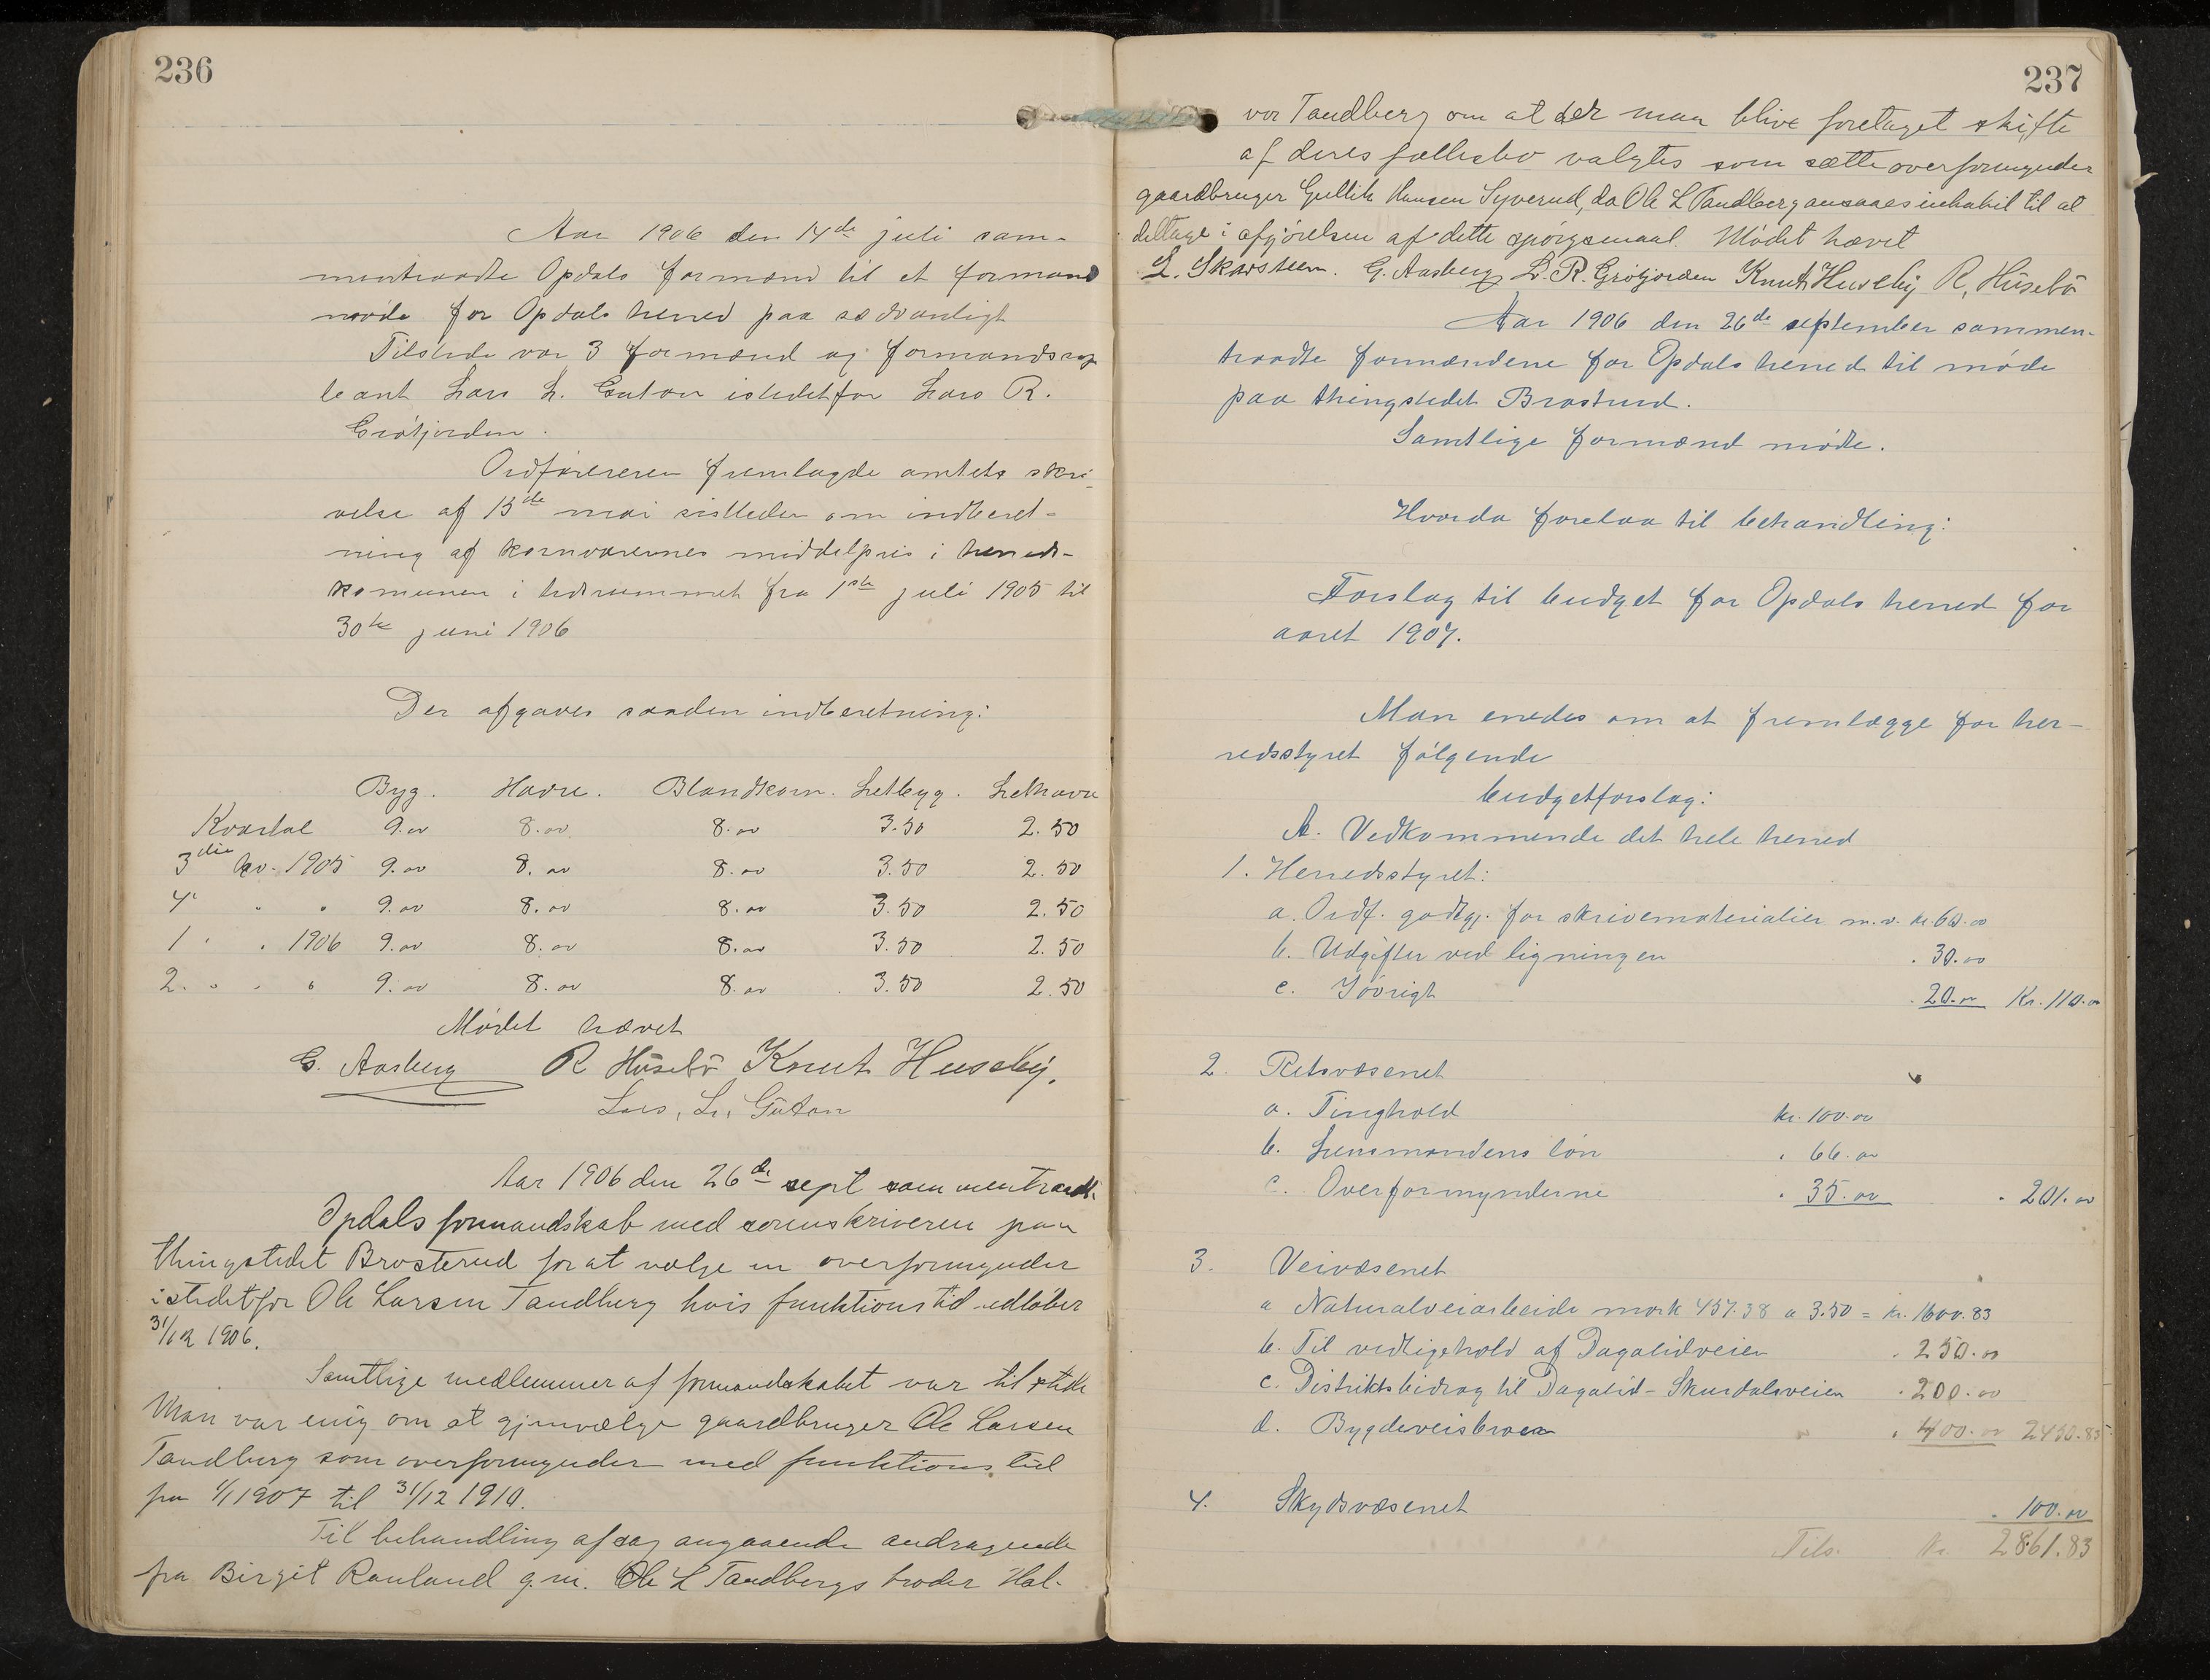 236
Aar 1906 den 14de juli sam-
mentraadte Opdals formænd til et formand
møde for Opdals herred paa sædvanligt
Tilstede var 3 formænd og formandssup
leant Lars L. Gutan istedetfor Lars R.
Grøtjorden.
Ordføreren fremlagde amtets skri-
velse af 15de mai sistleden om indberet-
ning af kornvarernes middelpris i herreds-
komunen i tidrummet fra 1ste juli 1905 til
30te juni 1906
Der afgaves saaden indberetning:
Byg. Havre. Blandkorn. Letbyg. Lethavre
Kvartal 9.00 8.00 8.00 3.50 2.50
3die kv. 1905 9.00 8.00 8.00 3.50 2.50
4' " " 9.00 8.00 8.00 3.50 2.50
1 " " 1906 9.00 8.00 8.00 3.50 2.50
2. " " " 9.00 8.00 8.00 3.50 2.50
Mødet hævet
G. Aasberg R Húsebö Knut Huseby.
Lars, L, Gütan
Aar 1906 den 26de sept sammentraadte
Opdals formandskab med sorenskriveren paa
thingstedet Brosterud for at vælge en overformynder
istedetfor Ole Larsen Tandberg hvis funktionstid udløber
31/12 1906.
Samtlige medlemmer af formandskabet var tilstede
Man var enig om at gjenvælge gaardbruger Ole Larsen
Tandberg som overformynder med funktionstid
fra 1/1 1907 til 31/12 1910.
Til behandling af sag angaaende andragende
fra Birgit Rauland g.m. Ole L Tandbergs broder Hal-
237
vor Tandberg om at der maa blive foretaget skifte
af deres fællesbo valgtes som sætteoverformynder
gaardbruger Gullik Hansen Syverud, da Ole L Tandberg ansaaes inhabil til at
deltage i afgjörelsen af dette spörgsmaal. Mödet hævet
L. Skarsteen. G. Aasberg L. R. Grötjorden Knut Huseby R, Húsebö
Aar 1906 den 26de september sammen-
traadte formændene for Opdals herred til møde
paa thingstedet Brostrud.
Samtlige formænd mødte.
Hvorda forelaa til behandling:
Forslag til budget for Opdals herred for
aaret 1907.
Man enedes om at fremlægge for her-
redsstyret følgende
budgetforslag:
A. Vedkommende det hele herred
1. Herredsstyret:
a. Ordf. godtgj. for skrivematerialier m.v. kr. 60.00
b. Udgifter ved ligningen " 30.00
c. Iøvrigt " 20.00 Kr. 110.00
2. Retsvæsenet
a. Tinghold kr. 100.00
b. Lensmandens løn " 66.00
c. Overformynderne " 35.00 " 201.00
3. Veivæsenet
a Naturalveiarbeide mark 457.38 a 3.50 = kr. 1600.83
b. Til vedligehold af Dagalidveien " 250.00
c. Distriktsbidrag til Dagalid-Skurdalsveien " 200.00
d. Bygdeveisbroer " " 400.00 2450.83
4. Skydsvæsenet " 100.00
Tils. Kr. 2861.83